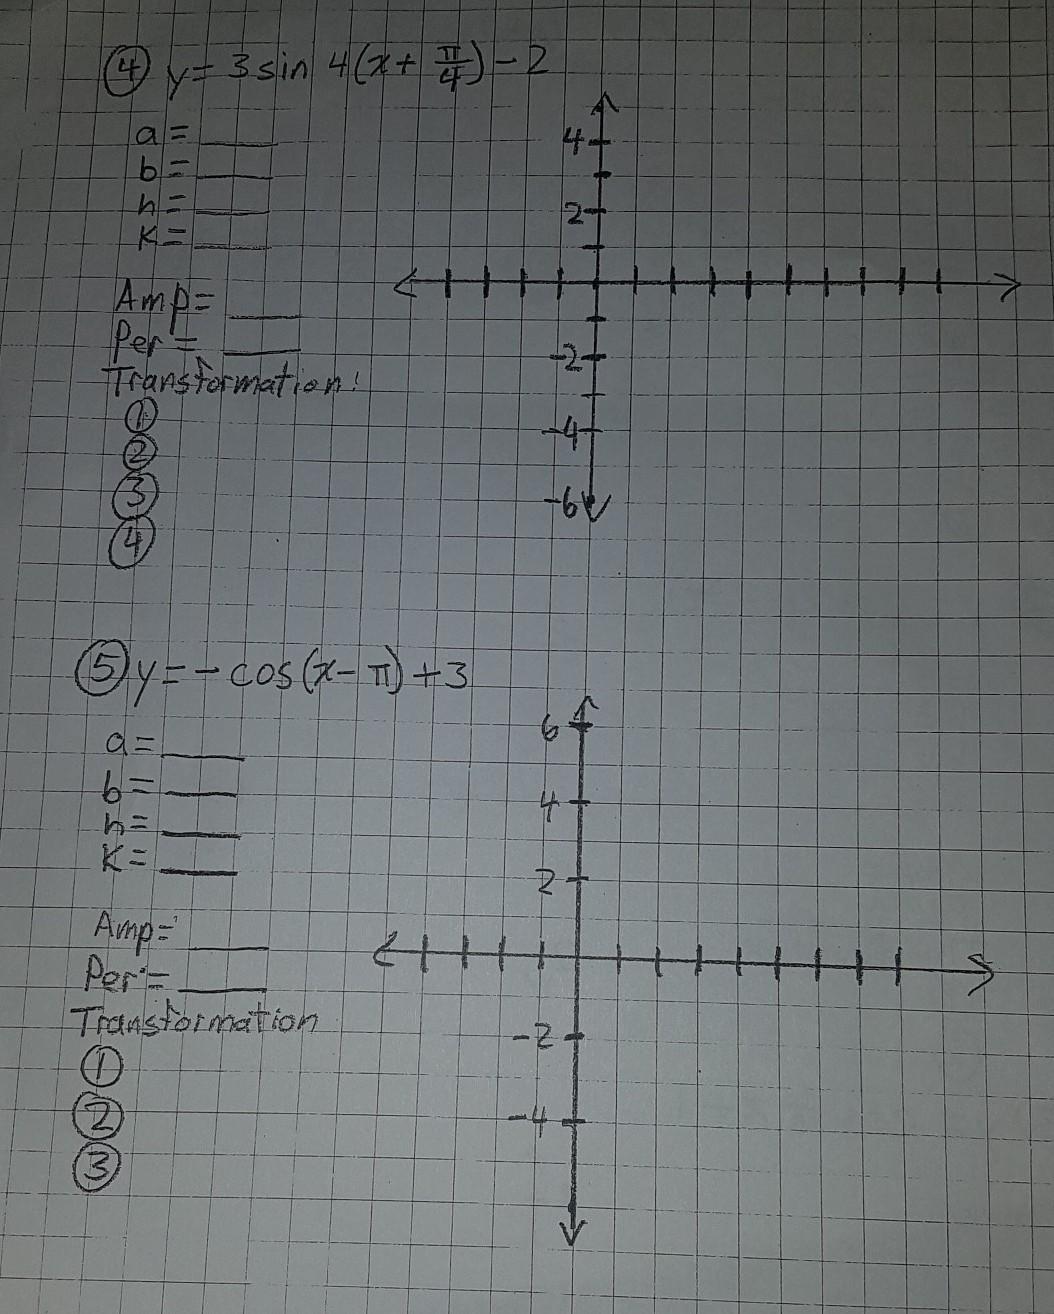 ④ y = 3 sin 4(x + π/4) - 2
a = ____
b = ____
h = ____
K = ____
Amp = ____
Per = ____
Transformation:
①
②
③
④
4
2
-2
-4
-6
⑤ y = - cos(x - π) + 3
a = ____
b = ____
h = ____
K = ____
Amp = ____
Per = ____
Transformation
①
②
③
6
4
2
-2
-4